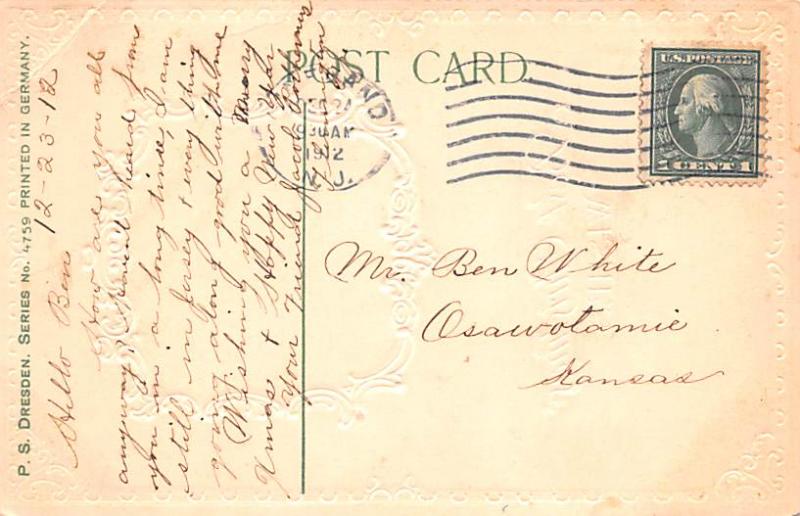 P. S. DRESDEN. SERIES No. 4759 PRINTED IN GERMANY.
12-23-12
Hello Ben
How are you all
anyway, I havent heard from
you in a long time, I am
still in Jersey & every thing
going along good with me
Wishing you a Merry
Xmas & Happy New Year
Your Friend Jacob
POST CARD
1912
N.J.
U.S. POSTAGE
1 CENT 1
Mr. Ben White
Osawotamie
Kansas